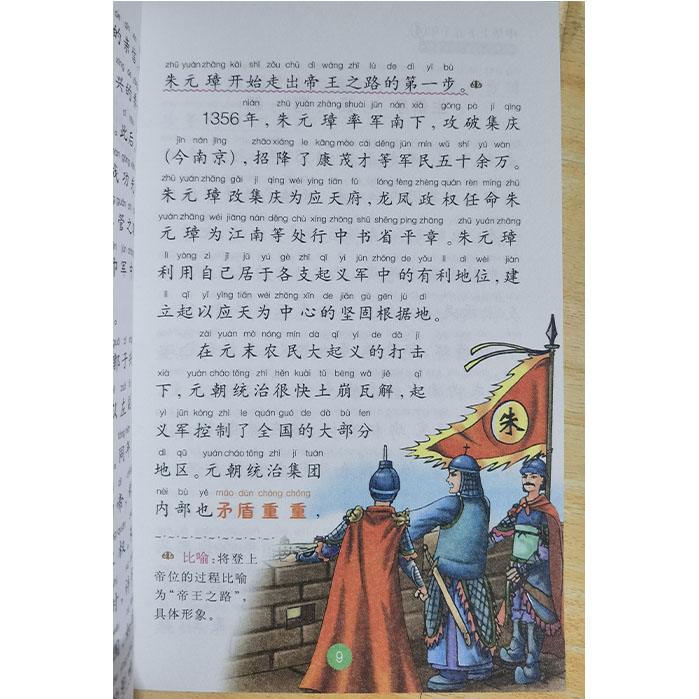 zhū yuán zhāng kāi shǐ zǒu chū dì wáng zhī lù de dì yī bù
朱元璋开始走出帝王之路的第一步。
nián zhū yuán zhāng shuài jūn nán xià gōng pò jí qìng
1356年，朱元璋率军南下，攻破集庆
jīn nán jīng zhāo xiáng le kāng mào cái děng jūn mín wǔ shí yú wàn
（今南京），招降了康茂才等军民五十余万。
zhū yuán zhāng gǎi jí qìng wéi yìng tiān fǔ lóng fèng zhèng quán rèn mìng zhū
朱元璋改集庆为应天府，龙凤政权任命朱
yuán zhāng wéi jiāng nán děng chù xíng zhōng shū shěng píng zhāng zhū yuán zhāng
元璋为江南等处行中书省平章。朱元璋
lì yòng zì jǐ jū yú gè zhī qǐ yì jūn zhōng de yǒu lì dì wèi jiàn
利用自己居于各支起义军中的有利地位，建
lì qǐ yǐ yìng tiān wéi zhōng xīn de jiān gù gēn jù dì
立起以应天为中心的坚固根据地。
zài yuán mò nóng mín dà qǐ yì de dǎ jī
在元末农民大起义的打击
xià yuán cháo tǒng zhì hěn kuài tǔ bēng wǎ jiě qǐ
下，元朝统治很快土崩瓦解，起
yì jūn kòng zhì le quán guó de dà bù fen
义军控制了全国的大部分
dì qū yuán cháo tǒng zhì jí tuán
地区。元朝统治集团
nèi bù yě máo dùn chóng chóng
内部也矛盾重重，
比喻：将登上
帝位的过程比喻
为“帝王之路”，
具体形象。
朱
9